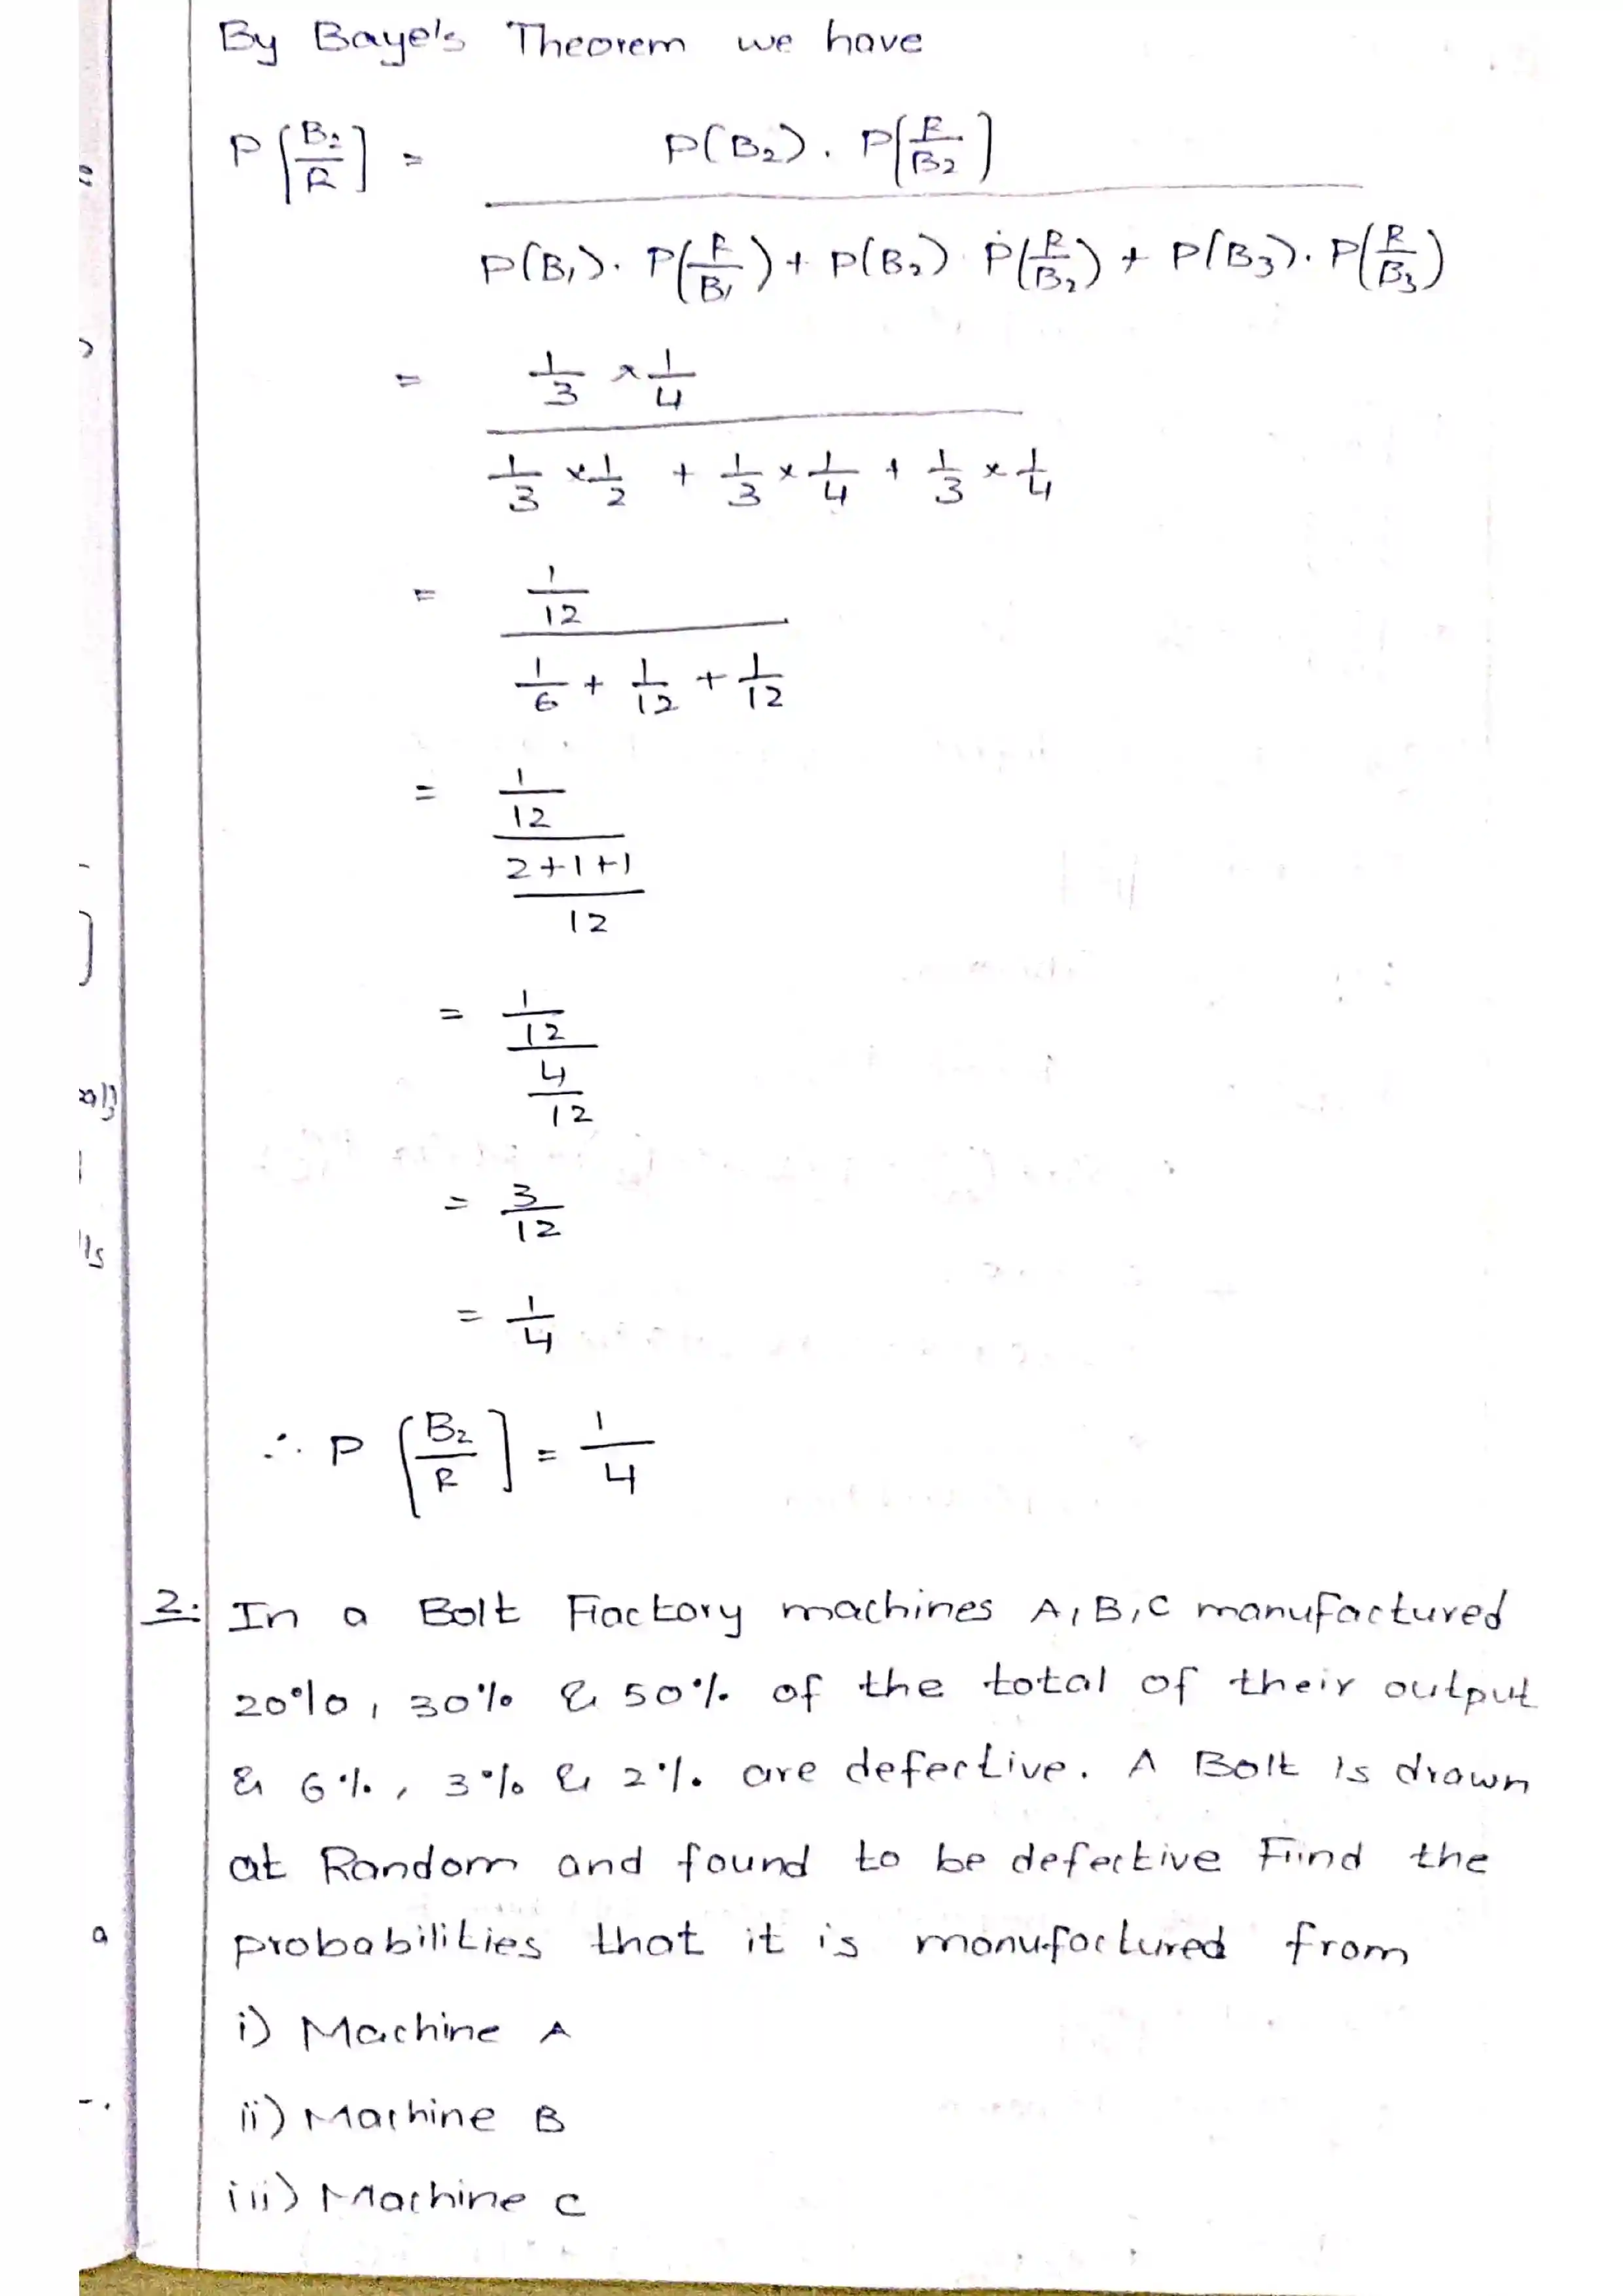 By Baye's Theorem we have
P[B₂/R] = P(B₂). P(R/B₂) / P(B₁). P(R/B₁) + P(B₂) P(R/B₂) + P(B₃). P(R/B₃)
= 1/3 × 1/4 / 1/3 × 1/2 + 1/3 × 1/4 + 1/3 × 1/4
= 1/12 / 1/6 + 1/12 + 1/12
= 1/12 / 2+1+1/12
= 1/12 / 4/12
= 3/12
= 1/4
∴ P[B₂/R] = 1/4
2. In a Bolt Factory machines A, B, C manufactured
20%, 30% & 50% of the total of their output
& 6%, 3% & 2% are defective. A Bolt is drawn
at Random and found to be defective Find the
probabilities that it is manufactured from
i) Machine A
ii) Machine B
iii) Machine C